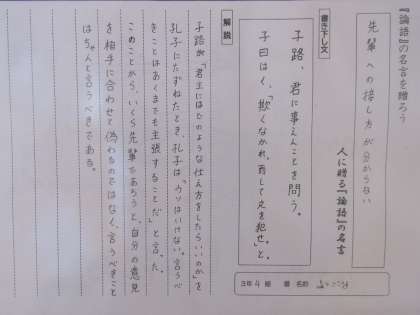 『論語』の名言を贈ろう
先輩への接し方が分からない
人に贈る『論語』の名言
書き下し文
子路、君に事えんことを問う。
子曰はく、「欺くなかれ。而して之を犯せ。」と。
3年4組 番 名前
解説
子路が「君主にはどのような仕え方をしたらいいのか」を
孔子にたずねたとき、孔子は、「ウソはいけない。言うべ
きことはあくまでも主張することだ」と言った。
このことから、いくら先輩であろうと、自分の意見
を相手に合わせて偽わるのではなく、言うべきこと
はちゃんと言うべきである。